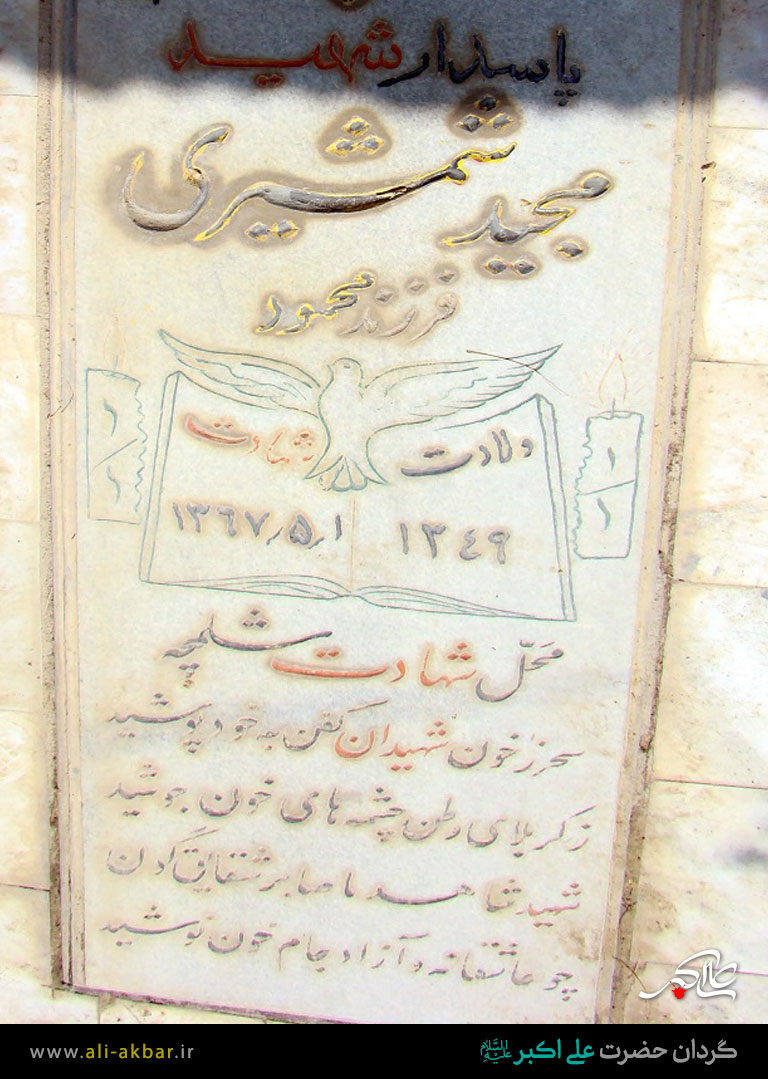 پاسدار شهید
مجید شمشیری
فرزند محمود
ولادت
۱۳۴۹
شهادت
۱۳۶۷٫۵٫۱
محلّ شهادت شلمچه
سحر ز خون شهیدان کفن به خود پوشید
ز کربلای وطن چشمه های خون جوشید
شهید شاهد ما صابر شقایق گردن
چو عاشقانه و آزاد جام خون نوشید
علی اکبر
گردان حضرت علی اکبر علیه السلام
www.ali-akbar.ir